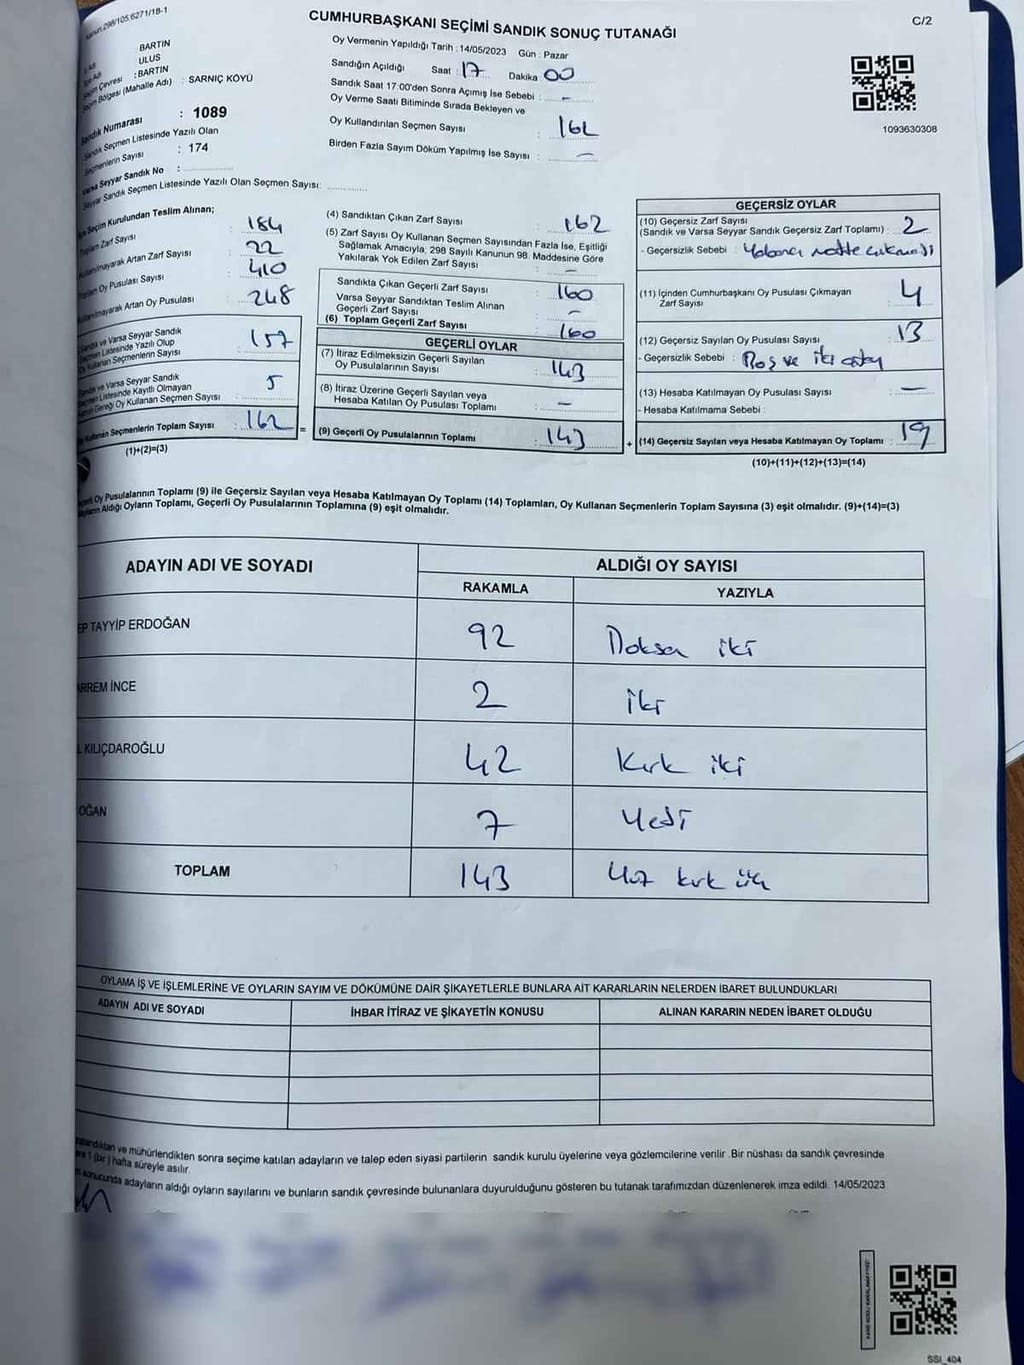 Kanun 298/105,6271/18-1
CUMHURBAŞKANI SEÇİMİ SANDIK SONUÇ TUTANAĞI
C/2
Adı : BARTIN
Adı : ULUS
Seçim Çevresi : BARTIN
Seçim Bölgesi (Mahalle Adı) : SARNIÇ KÖYÜ
Sandık Numarası : 1089
Sandık Seçmen Listesinde Yazılı Olan
Seçmenlerin Sayısı : 174
Varsa Seyyar Sandık No :
Seyyar Sandık Listesinde Yazılı Olan Seçmen Sayısı:
Oy Vermenin Yapıldığı Tarih : 14/05/2023 Gün : Pazar
Sandığın Açıldığı Saat : 17 Dakika 00
Sandık Saat 17:00'den Sonra Açımış İse Sebebi : -
Oy Verme Saati Bitiminde Sırada Bekleyen ve
Oy Kullandırılan Seçmen Sayısı : 162
Birden Fazla Sayım Döküm Yapılmış İse Sayısı : -
1093630308
Seçim Kurulundan Teslim Alınan;
Toplam Zarf Sayısı : 184
Kullanılmayarak Artan Zarf Sayısı : 22
Toplam Oy Pusulası Sayısı : 410
Kullanılmayarak Artan Oy Pusulası : 248
Sandık ve Varsa Seyyar Sandık
Seçmen Listesinde Yazılı Olup
Oy Kullanan Seçmenlerin Sayısı : 157
Sandık ve Varsa Seyyar Sandık
Seçmen Listesinde Kayıtlı Olmayan
Kanun Gereği Oy Kullanan Seçmen Sayısı : 5
Oy Kullanan Seçmenlerin Toplam Sayısı : 162 =
(1)+(2)=(3)
(4) Sandıktan Çıkan Zarf Sayısı : 162
(5) Zarf Sayısı Oy Kullanan Seçmen Sayısından Fazla İse, Eşitliği
Sağlamak Amacıyla, 298 Sayılı Kanunun 98. Maddesine Göre
Yakılarak Yok Edilen Zarf Sayısı : -
Sandıkta Çıkan Geçerli Zarf Sayısı : 160
Varsa Seyyar Sandıktan Teslim Alınan
Geçerli Zarf Sayısı : -
(6) Toplam Geçerli Zarf Sayısı : 160
GEÇERLİ OYLAR
(7) İtiraz Edilmeksizin Geçerli Sayılan
Oy Pusulalarının Sayısı : 143
(8) İtiraz Üzerine Geçerli Sayılan veya
Hesaba Katılan Oy Pusulası Toplamı : -
(9) Geçerli Oy Pusulalarının Toplamı : 143 +
GEÇERSİZ OYLAR
(10) Geçersiz Zarf Sayısı
(Sandık ve Varsa Seyyar Sandık Geçersiz Zarf Toplamı) : 2
- Geçersizlik Sebebi : Yabancı madde
(11) İçinden Cumhurbaşkanı Oy Pusulası Çıkmayan
Zarf Sayısı : 4
(12) Geçersiz Sayılan Oy Pusulası Sayısı : 13
- Geçersizlik Sebebi : Boş ve iki
(13) Hesaba Katılmayan Oy Pusulası Sayısı : -
- Hesaba Katılmama Sebebi :
(14) Geçersiz Sayılan veya Hesaba Katılmayan Oy Toplamı : 19
(10)+(11)+(12)+(13)=(14)
Oy Pusulalarının Toplamı (9) ile Geçersiz Sayılan veya Hesaba Katılmayan Oy Toplamı (14) Toplamları, Oy Kullanan Seçmenlerin Toplam Sayısına (3) eşit olmalıdır. (9)+(14)=(3)
Aldığı Oyların Toplamı, Geçerli Oy Pusulalarının Toplamına (9) eşit olmalıdır.
ADAYIN ADI VE SOYADI
ALDIĞI OY SAYISI
RAKAMLA YAZIYLA
EP TAYYİP ERDOĞAN 92 Doksan iki
ARREM İNCE 2 iki
L KILIÇDAROĞLU 42 Kırk iki
OĞAN 7 Yedi
TOPLAM 143 Yüz kırk üç
OYLAMA İŞ VE İŞLEMLERİNE VE OYLARIN SAYIM VE DÖKÜMÜNE DAİR ŞİKAYETLERLE BUNLARA AİT KARARLARIN NELERDEN İBARET BULUNDUKLARI
ADAYIN ADI VE SOYADI İHBAR İTİRAZ VE ŞİKAYETİN KONUSU ALINAN KARARIN NEDEN İBARET OLDUĞU
ve mühürlendikten sonra seçime katılan adayların ve talep eden siyasi partilerin sandık kurulu üyelerine veya gözlemcilerine verilir .Bir nüshası da sandık çevresinde
1 (bir) hafta süreyle asılır.
sonucunda adayların aldığı oyların sayılarını ve bunların sandık çevresinde bulunanlara duyurulduğunu gösteren bu tutanak tarafımızdan düzenlenerek imza edildi. 14/05/2023
SSI_404